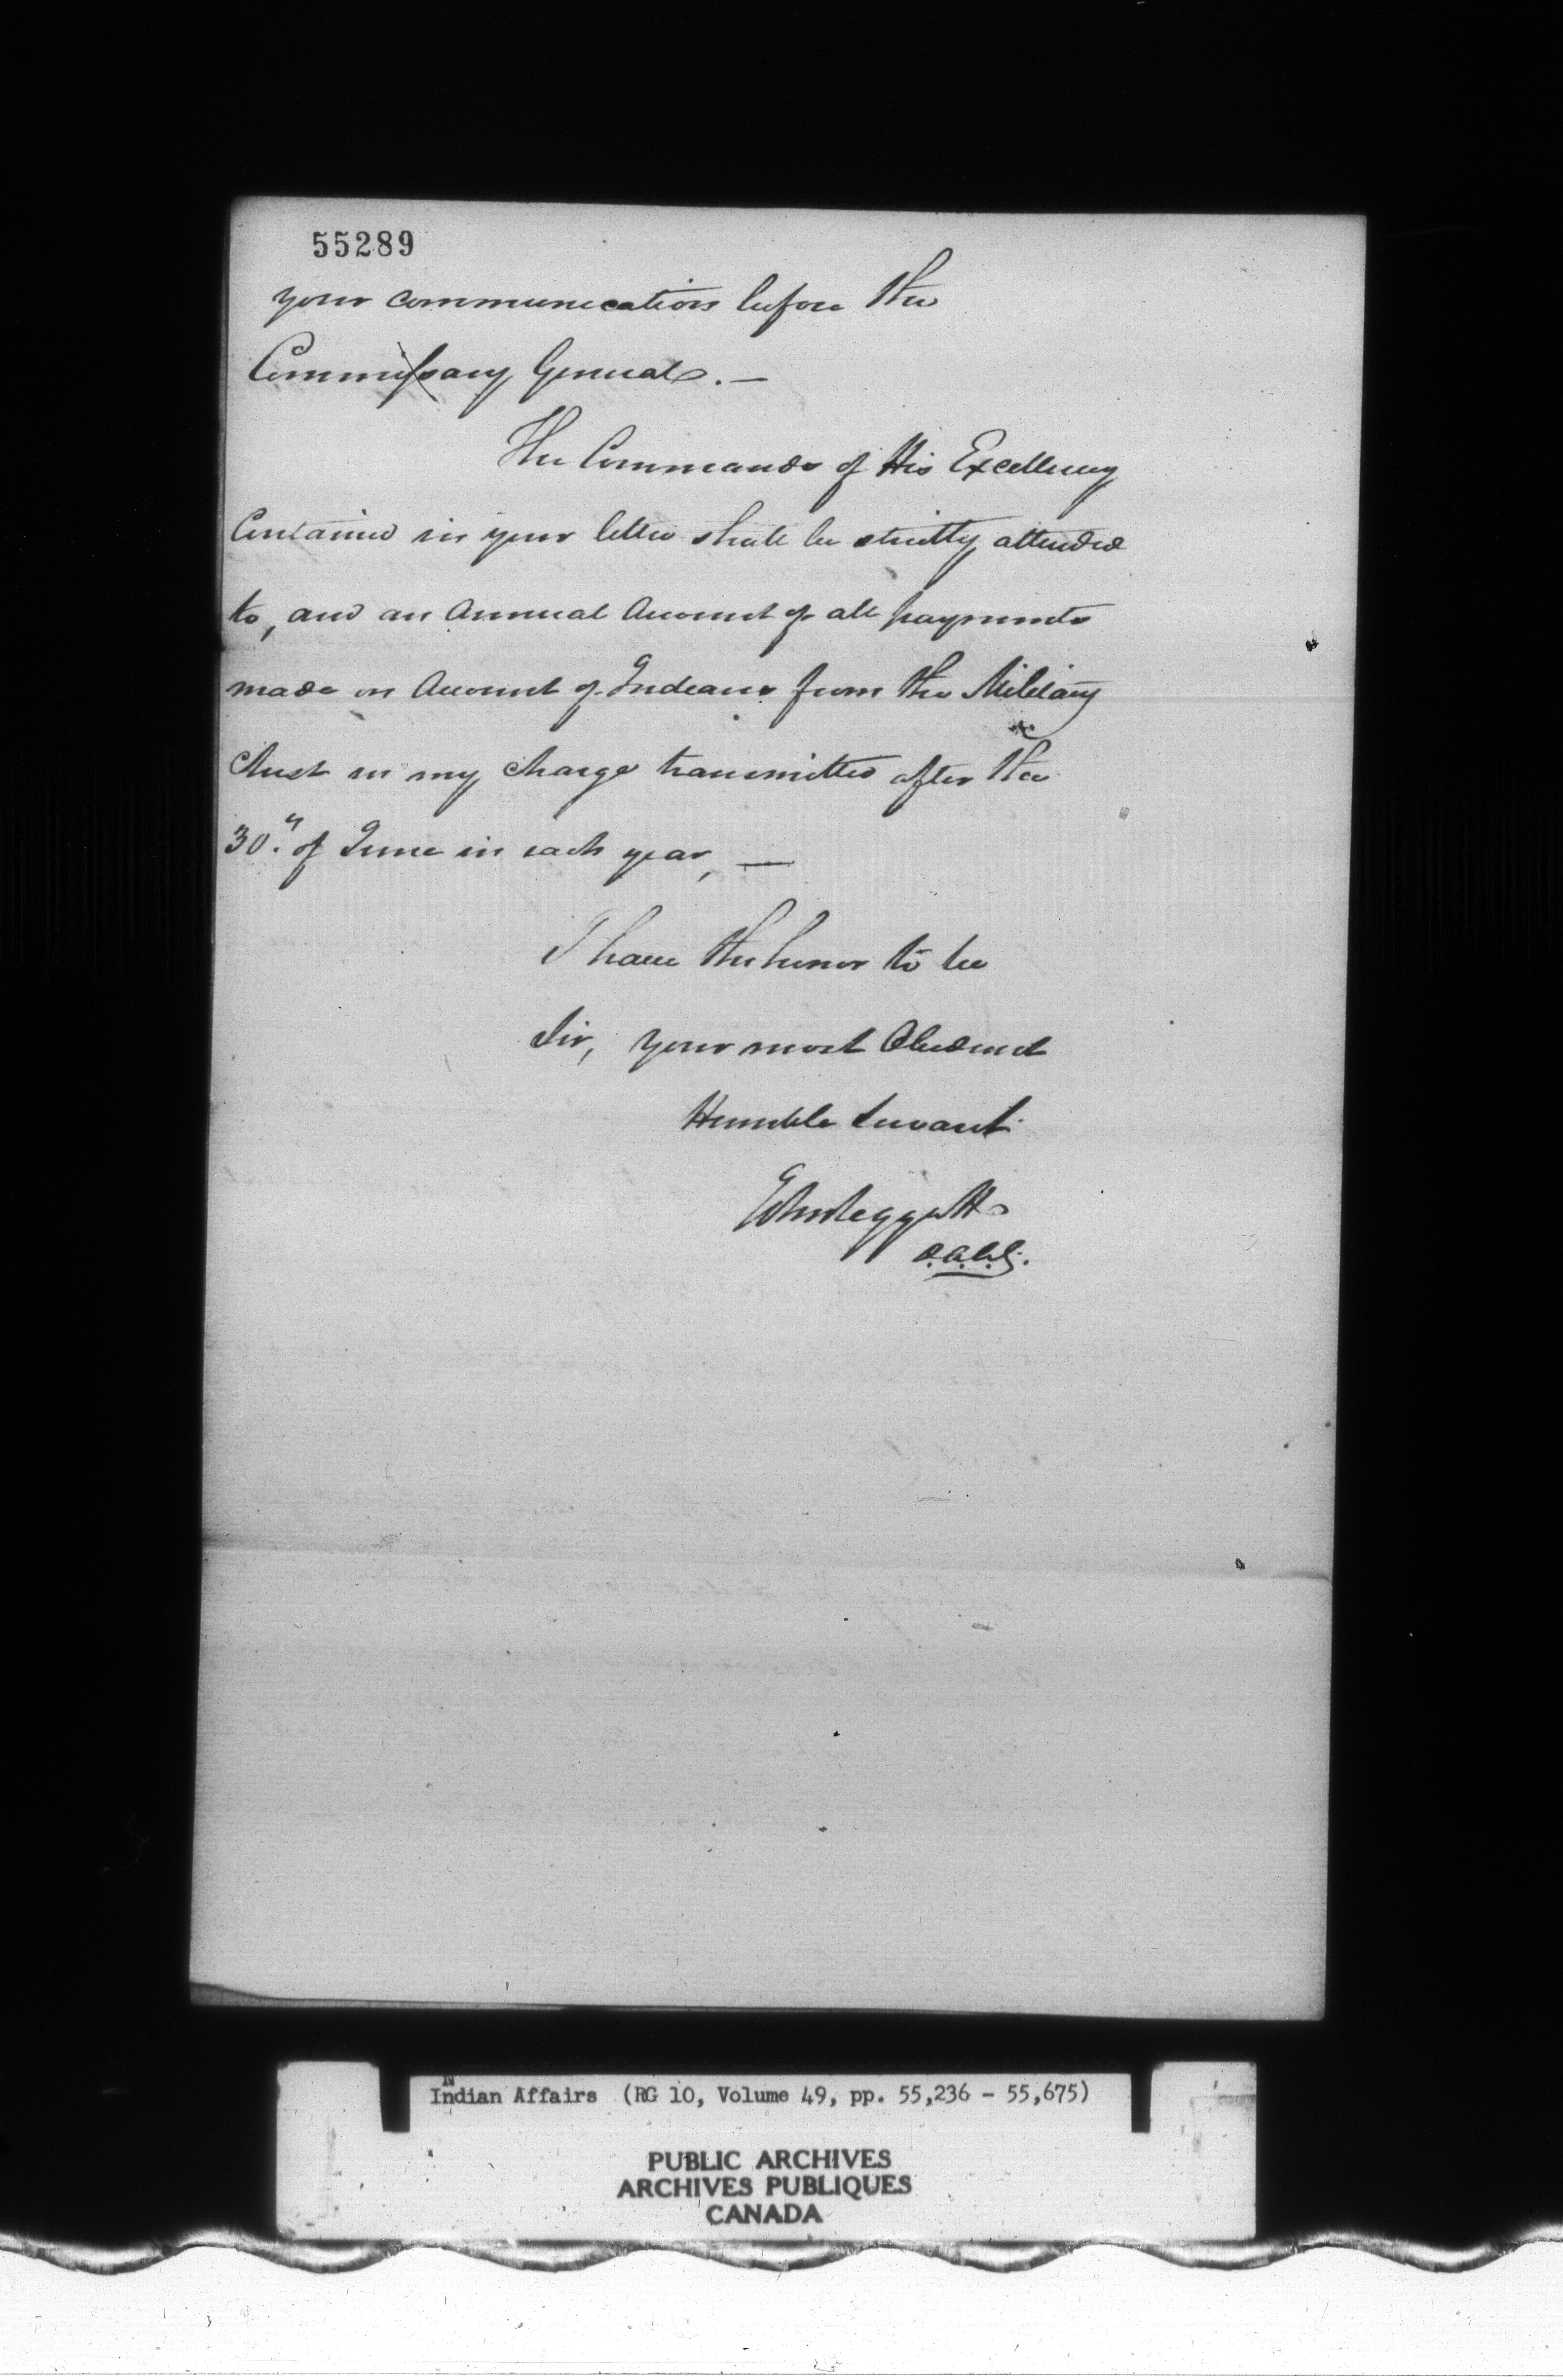 55289
your communication before the
Commissary General. —
The Commands of His Excellency
Contained in your letter shall be strictly attended
to, and an Annual Account of all payments
made on Account of Indians from the Military
Chest in my Charge transmitted after the
30th of June in each year, —
I have the honor to be
Sir, your most Obedient
Humble Servant
John Leggatt
D.A.C.G.
Indian Affairs (RG 10, Volume 49, pp. 55,236 - 55,675)
PUBLIC ARCHIVES
ARCHIVES PUBLIQUES
CANADA